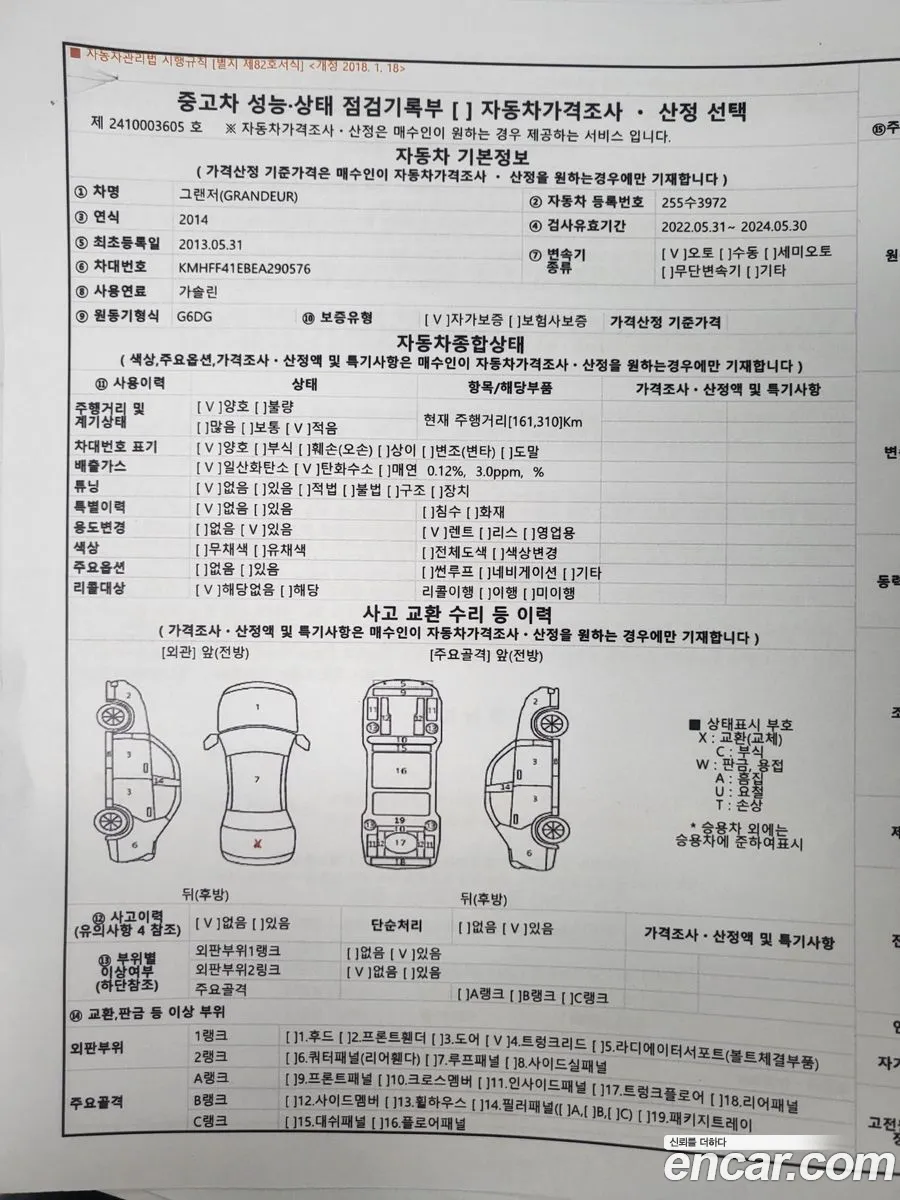 ■ 자동차관리법 시행규칙 [별지 제82호서식] <개정 2018. 1. 18>
중고차 성능·상태 점검기록부 [ ] 자동차가격조사 · 산정 선택
제 2410003605 호 ※ 자동차가격조사 · 산정은 매수인이 원하는 경우 제공하는 서비스 입니다.
자동차 기본정보
( 가격산정 기준가격은 매수인이 자동차가격조사 · 산정을 원하는경우에만 기재합니다 )
① 차명 그랜저(GRANDEUR) ② 자동차 등록번호 255수3972
③ 연식 2014 ④ 검사유효기간 2022.05.31~ 2024.05.30
⑤ 최초등록일 2013.05.31 ⑦ 변속기 종류 [ V ]오토 [ ]수동 [ ]세미오토
⑥ 차대번호 KMHFF41EBEA290576 [ ]무단변속기 [ ]기타
⑧ 사용연료 가솔린
⑨ 원동기형식 G6DG ⑩ 보증유형 [ V ]자가보증 [ ]보험사보증 가격산정 기준가격
자동차종합상태
( 색상,주요옵션,가격조사 · 산정액 및 특기사항은 매수인이 자동차가격조사 · 산정을 원하는경우에만 기재합니다 )
⑪ 사용이력 상태 항목/해당부품 가격조사 · 산정액 및 특기사항
주행거리 및 계기상태 [ V ]양호 [ ]불량 현재 주행거리[161,310]Km
[ ]많음 [ ]보통 [ V ]적음
차대번호 표기 [ V ]양호 [ ]부식 [ ]훼손(오손) [ ]상이 [ ]변조(변타) [ ]도말
배출가스 [ V ]일산화탄소 [ V ]탄화수소 [ ]매연 0.12%, 3.0ppm, %
튜닝 [ V ]없음 [ ]있음 [ ]적법 [ ]불법 [ ]구조 [ ]장치
특별이력 [ V ]없음 [ ]있음 [ ]침수 [ ]화재
용도변경 [ ]없음 [ V ]있음 [ V ]렌트 [ ]리스 [ ]영업용
색상 [ ]무채색 [ ]유채색 [ ]전체도색 [ ]색상변경
주요옵션 [ ]없음 [ ]있음 [ ]썬루프 [ ]네비게이션 [ ]기타
리콜대상 [ V ]해당없음 [ ]해당 리콜이행 [ ]이행 [ ]미이행
사고 교환 수리 등 이력
( 가격조사 · 산정액 및 특기사항은 매수인이 자동차가격조사 · 산정을 원하는 경우에만 기재합니다 )
[외관] 앞(전방) [주요골격] 앞(전방)
■ 상태표시 부호
X : 교환(교체)
C : 부식
W : 판금, 용접
A : 흠집
U : 요철
T : 손상
* 승용차 외에는
승용차에 준하여표시
뒤(후방) 뒤(후방)
⑫ 사고이력 [ V ]없음 [ ]있음 단순처리 [ ]없음 [ V ]있음 가격조사 · 산정액 및 특기사항
(유의사항 4 참조)
⑬ 부위별 이상여부 (하단참조) 외판부위1랭크 [ ]없음 [ V ]있음
외판부위2링크 [ V ]없음 [ ]있음
주요골격 [ ]A랭크 [ ]B랭크 [ ]C랭크
⑭ 교환,판금 등 이상 부위
외판부위 1랭크 [ ]1.후드 [ ]2.프론트휀더 [ ]3.도어 [ V ]4.트렁크리드 [ ]5.라디에이터서포트(볼트체결부품)
2랭크 [ ]6.쿼터패널(리어휀다) [ ]7.루프패널 [ ]8.사이드실패널
주요골격 A랭크 [ ]9.프론트패널 [ ]10.크로스멤버 [ ]11.인사이드패널 [ ]17.트렁크플로어 [ ]18.리어패널
B랭크 [ ]12.사이드멤버 [ ]13.휠하우스 [ ]14.필러패널([ ]A,[ ]B,[ ]C) [ ]19.패키지트레이
C랭크 [ ]15.대쉬패널 [ ]16.플로어패널
신뢰를 더하다
encar.com